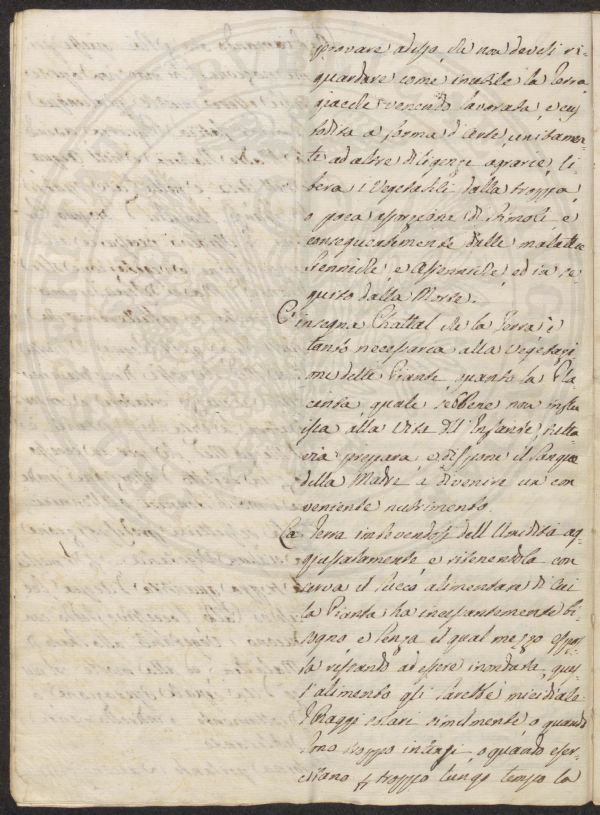 provare adesso che non devesi ri-
guardare come inutile la Terra
giacchè venendo lavorata, e cus
todita a forma d'arte, unitamen
te ad altre diligenze agrarie, li
bera i Vegetabili dalla troppa,
o poca di stimoli, e
conseguentemente dalle malattie
Steniche, e Asteniche, ed in se
guito dalla Morte.
C'insegna Chattal che la Terra è
tanto necessaria alla vegetazi
one delle Piante quanto la Pla
centa quale sebbene non influ
isca alla Vita dell'Infante, tutta
via prepara, e dispone il Sangue
della Madre a divenire un con
veniente nutrimento.
La Terra imbevendosi dell'Umidità ag
giustatamente e ritenendola con
serva il succo alimentare di cui
la Pianta ha incessantemente bi
sogno e senza il qual mezzo espos
ta restando ad essere inondata, ques
t'alimento gli sarebbe micidiale.
I Raggi solari similmente o quando
sono troppo intensi, o quando eser-
citano p troppo lungo tempo la